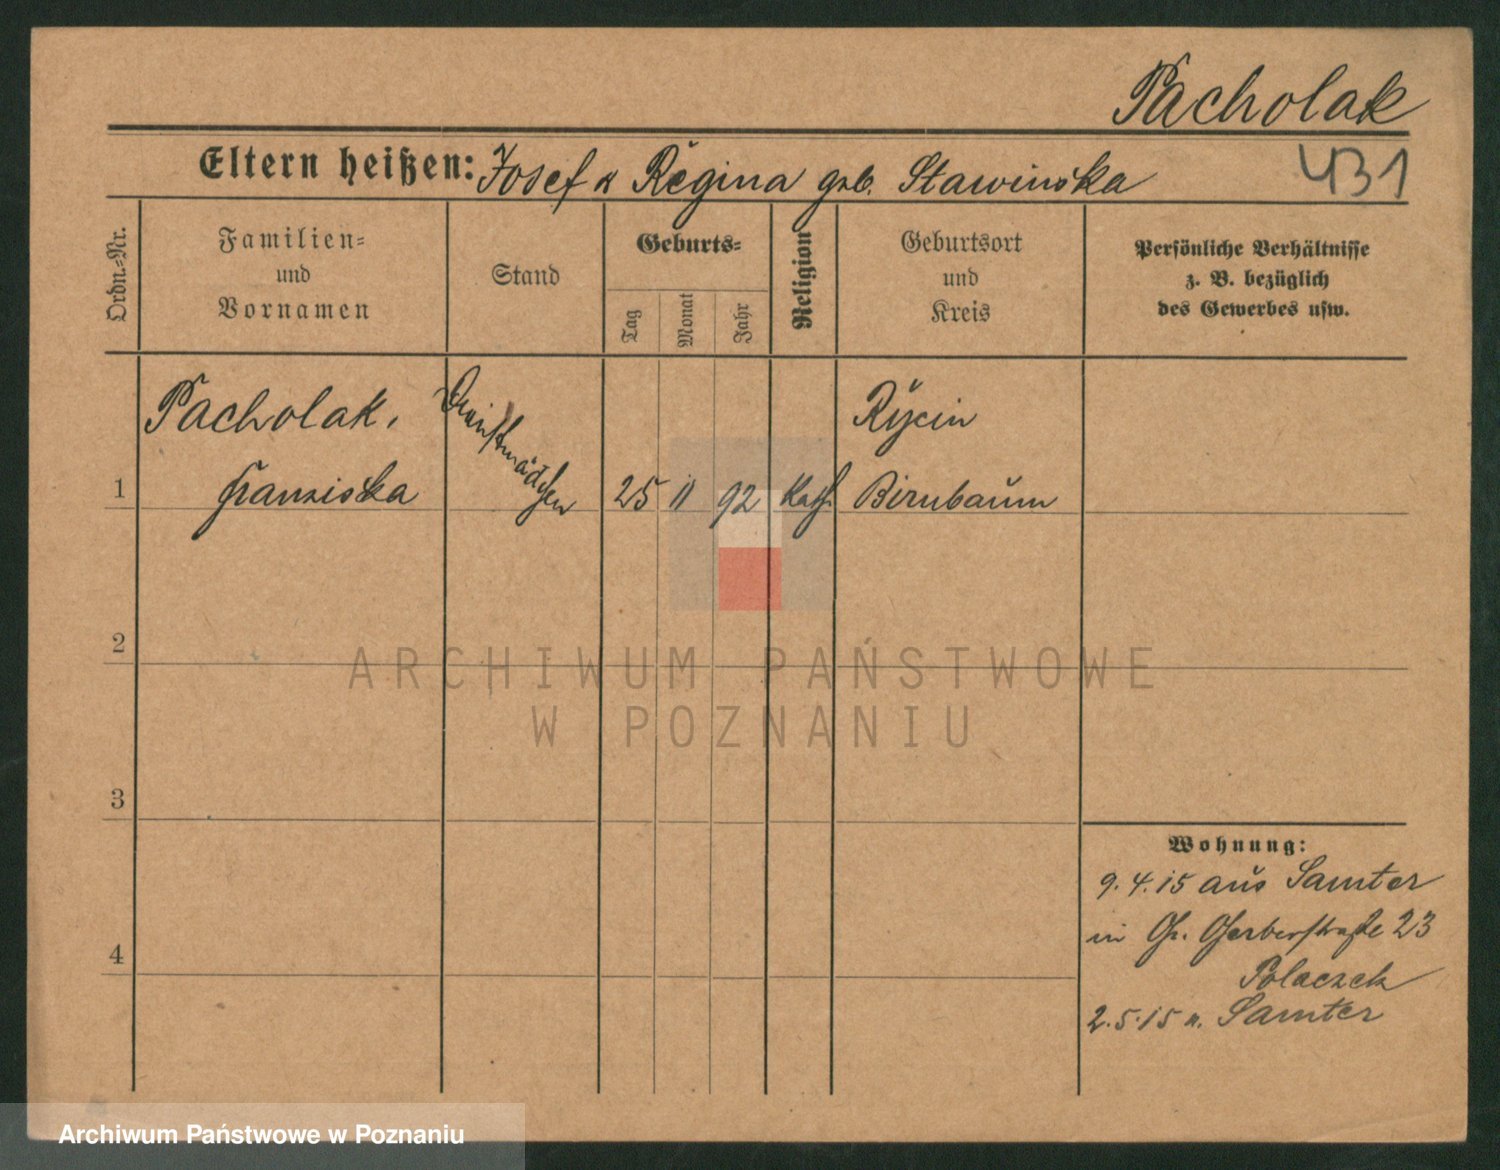 Pacholak
Eltern heißen: Josef u Regina geb. Stawinska
431
Ordn.-Nr.
Familien-
und
Vornamen
Stand
Geburts-
Tag
Monat
Jahr
Religion
Geburtsort
und
Kreis
Persönliche Verhältnisse
z. B. bezüglich
des Gewerbes usw.
1
Pacholak,
Franziska
Dienstmädchen
25
11
92
Kath.
Birnbaum
2
3
4
Wohnung:
9.4.15 aus Samter
in Gr. Gerberstraße 23
Polaczek
2.5.15 n. Samter
ARCHIWUM PAŃSTWOWE
W POZNANIU
Archiwum Państwowe w Poznaniu